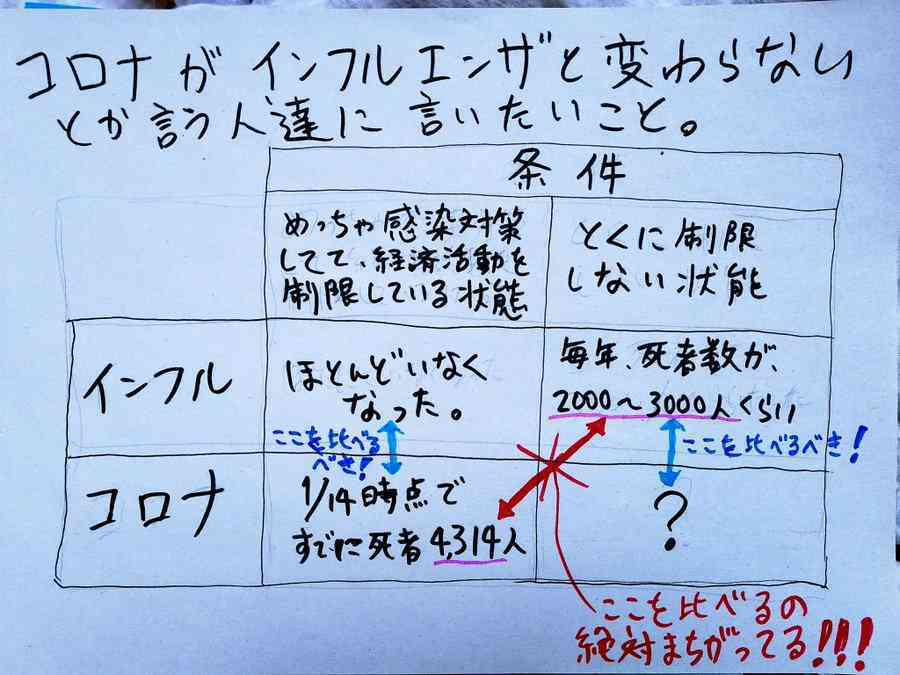 コロナがインフルエンザと変わらない
とか言う人達に言いたいこと。
条件
めっちゃ感染対策
してて、経済活動を
制限している状態
とくに制限
しない状態
インフル
ほとんどいなく
なった。
毎年、死者数が、
2000〜3000人くらい
ここを比べる
べき!
ここを比べるべき!
コロナ
1/14時点で
すでに死者4,314人
?
ここを比べるの
絶対まちがってる!!!